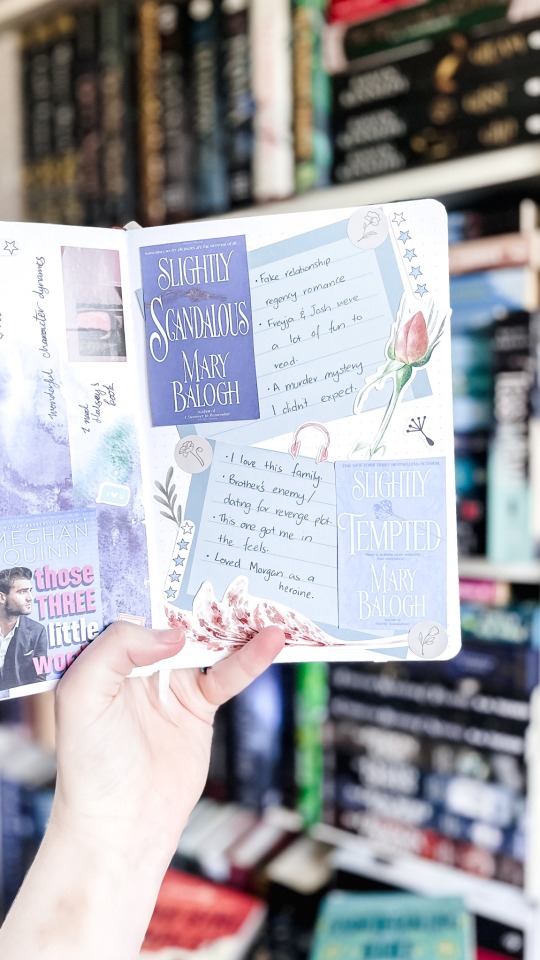 wonderful character dynamics
I need
Halsey's
book
MEGHAN
QUINN
those
THREE
little
SLIGHTLY
SCANDALOUS
MARY
BALOGH
• Fake relationship
regency romance
• Freyja & Josh were
a lot of fun to
read.
• A murder mystery
I didn't expect.
• I love this family.
• Brother's enemy/
dating for revenge plot.
• This one got me in
the feels.
• Loved Morgan as a
heroine.
THE NEW YORK TIMES BESTSELLING AUTHOR
SLIGHTLY
TEMPTED
MARY
BALOGH